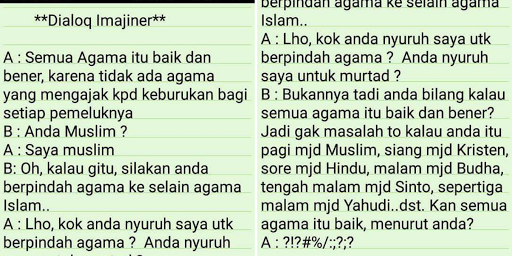 **Dialoq Imajiner**
A : Semua Agama itu baik dan
bener, karena tidak ada agama
yang mengajak kpd keburukan bagi
setiap pemeluknya
B : Anda Muslim ?
A : Saya muslim
B: Oh, kalau gitu, silakan anda
berpindah agama ke selain agama
Islam..
A : Lho, kok anda nyuruh saya utk
berpindah agama ? Anda nyuruh
berpindah agama ke selain agama
Islam..
A : Lho, kok anda nyuruh saya utk
berpindah agama ? Anda nyuruh
saya untuk murtad ?
B : Bukannya tadi anda bilang kalau
semua agama itu baik dan bener?
Jadi gak masalah to kalau anda itu
pagi mjd Muslim, siang mjd Kristen,
sore mjd Hindu, malam mjd Budha,
tengah malam mjd Sinto, sepertiga
malam mjd Yahudi..dst. Kan semua
agama itu baik, menurut anda?
A : ?!?#%/:;?;?